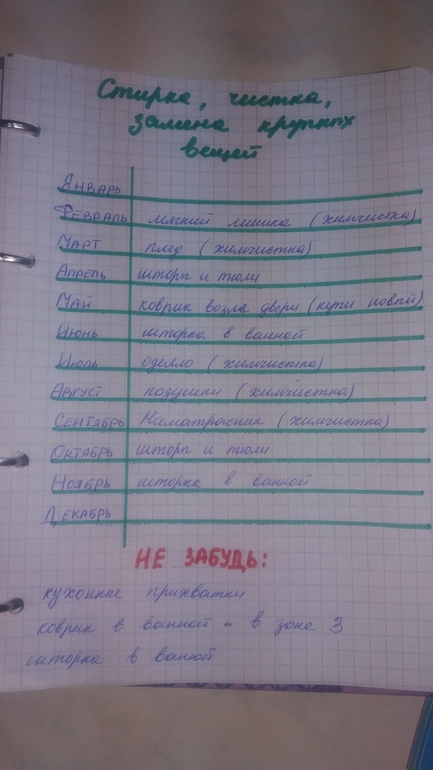 Стирка, чистка,
замена крупных
вещей
Январь
Февраль мягкий мишка (химчистка)
Март плед (химчистка)
Апрель шторы и тюли
Май коврик возле двери (купи новый)
Июнь шторка в ванной
Июль одеяло (химчистка)
Август подушки (химчистка)
Сентябрь Наматрасник (химчистка)
Октябрь шторы и тюли
Ноябрь шторка в ванной
Декабрь
НЕ ЗАБУДЬ:
кухонные прихватки
коврик в ванной - в зоне 3
шторка в ванной